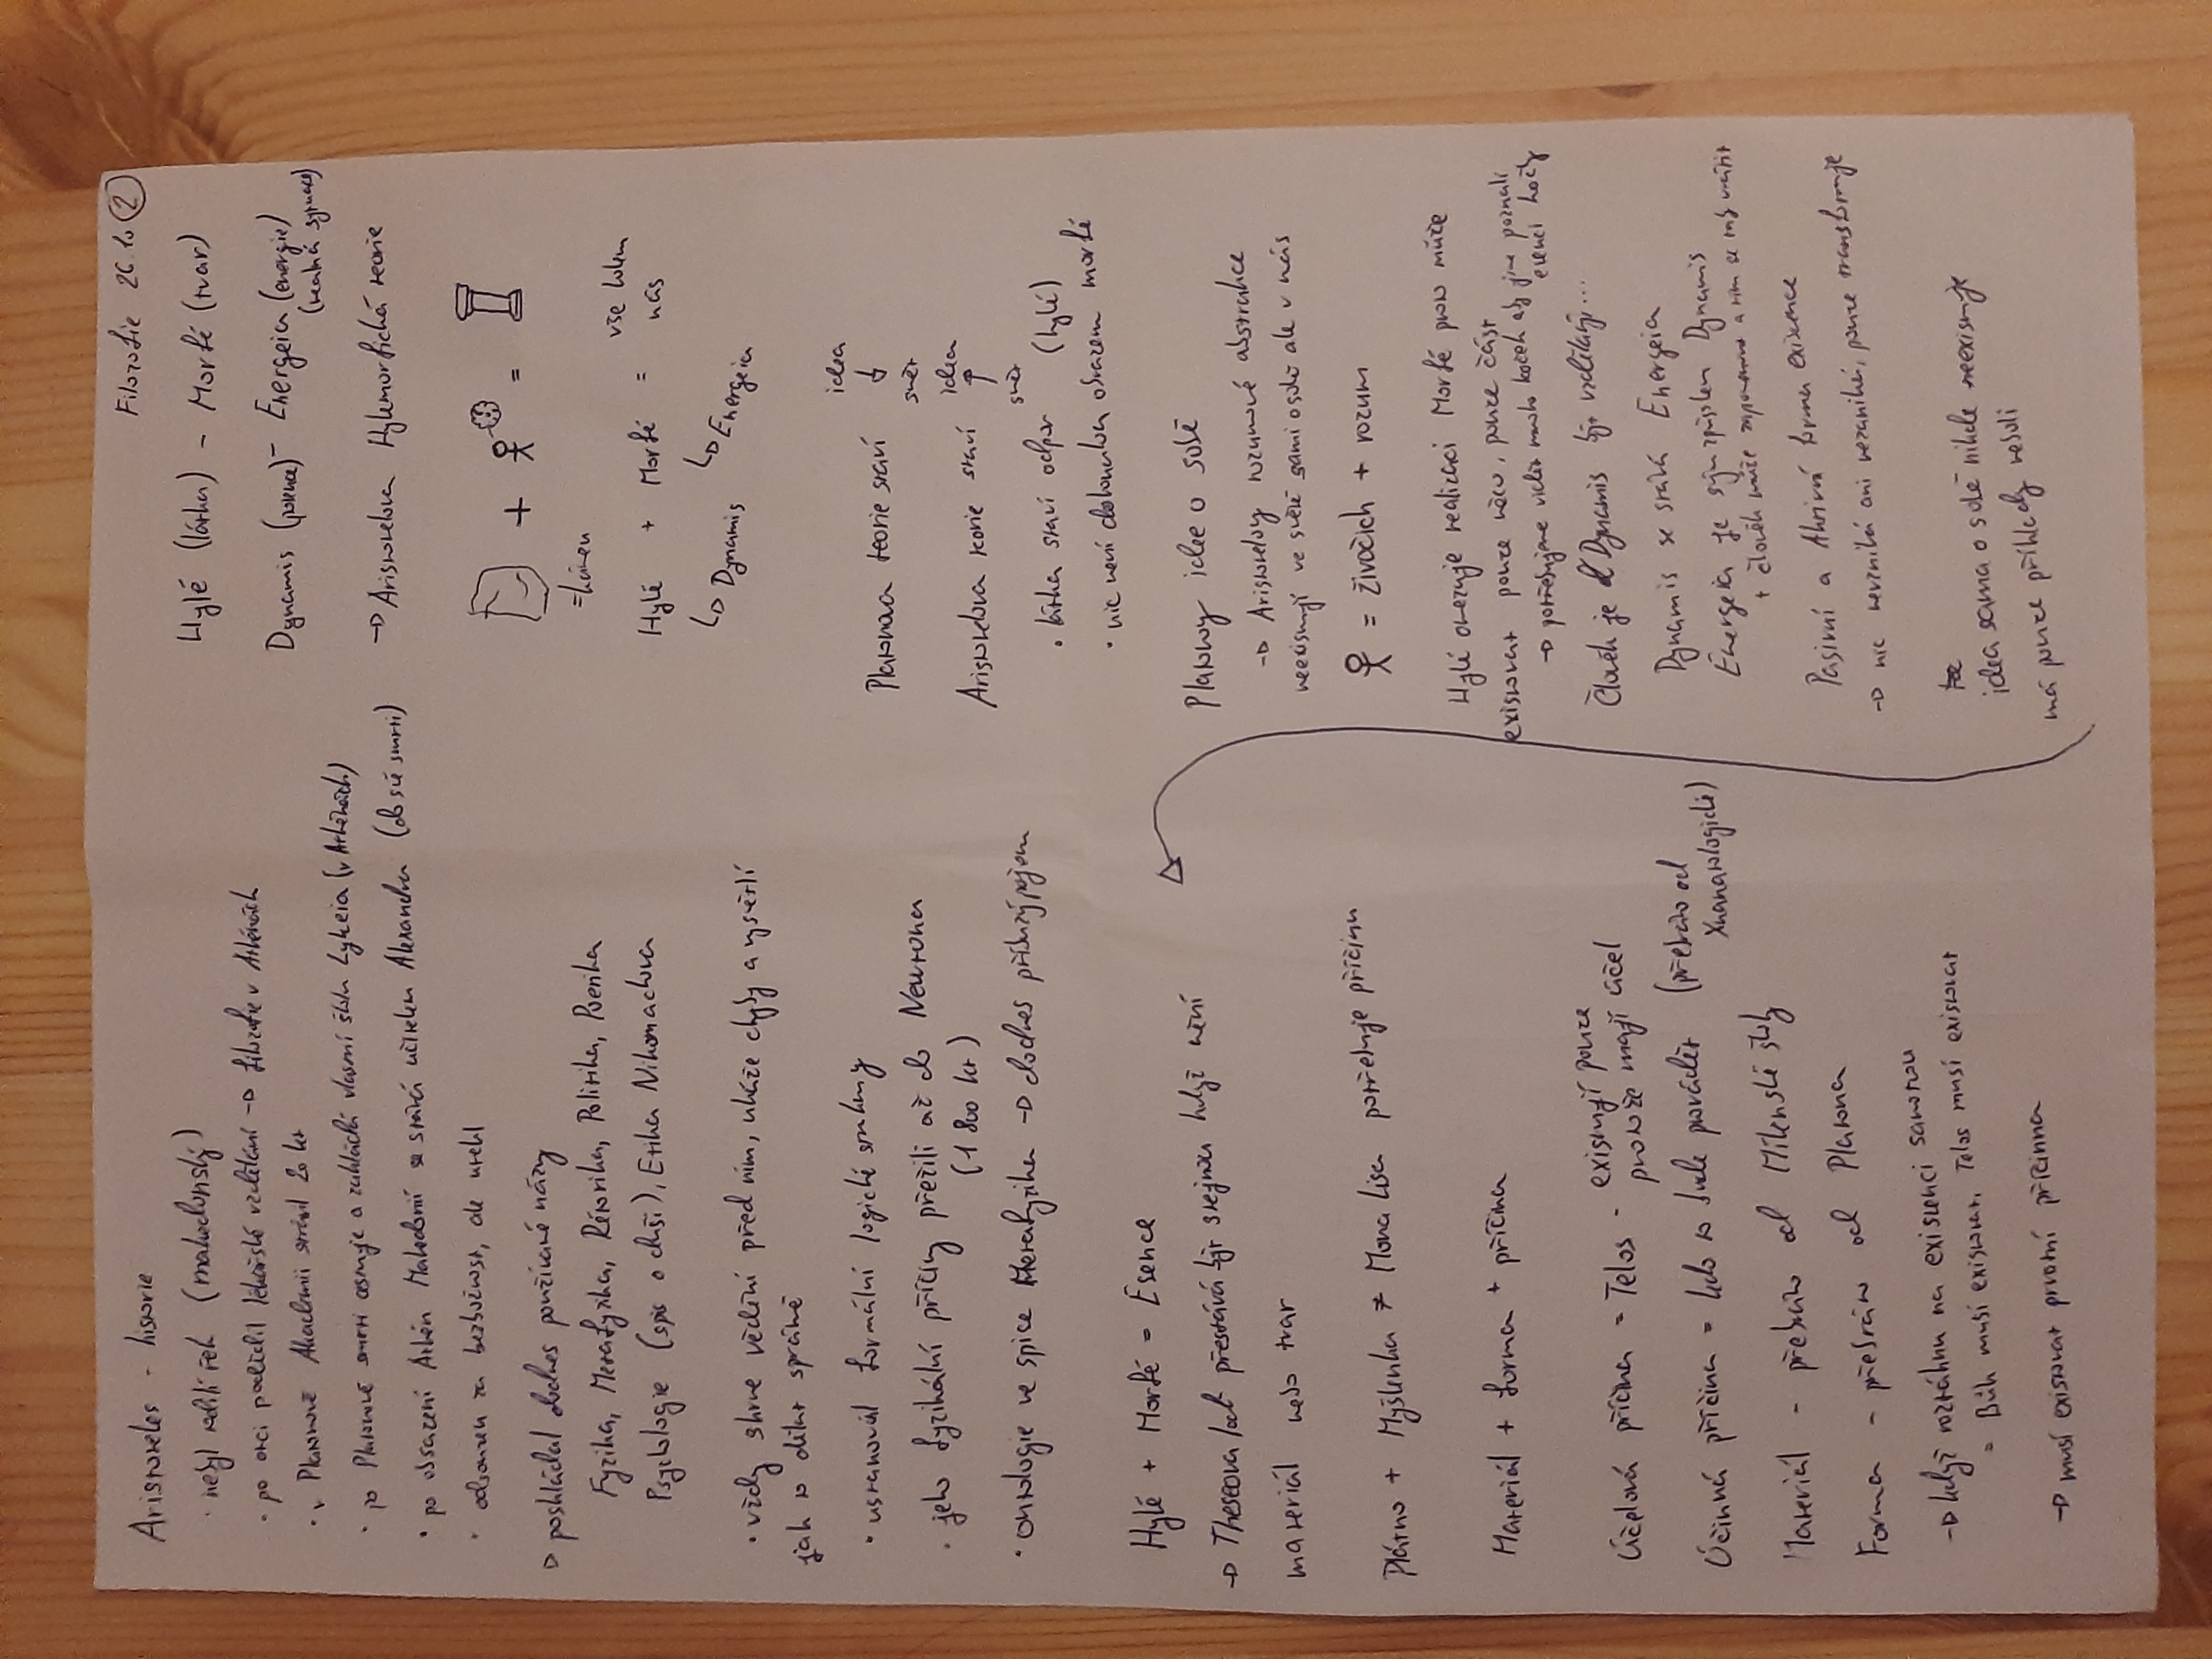 Filozofie 26.10 2
Aristoteles - historie
· nebyl rodilí řek (makedonský)
· po otci podědil lékařské vzdělání → filozofie v Aténách
· v Platonově Akademii strávil 20 let
· po Platonově smrti cestuje a zakládá vlastní školu Lykeia (v Athénách)
· po obsazení Athén Makedonií se stává učitelem Alexandra (do své smrti)
· odsouzen za bezbožnost, ale utekl
→ poskládal dodnes používané názvy
Fyzika, Metafyzika, Rétorika, Politika, Poetika
Psychologie (spis o duši), Etika Nikomachova
· vždy shrne vědění před ním, ukáže chyby a vysvětlí
jak to dělat správně
· ustanovil formální logické souhrny
· jeho fyzikální příčiny přežili až do Newtona
(1 800 let)
· ontologie ve spise Metafyzika → dodnes příbuzný pojem
Hylé (látka) - Morfé (tvar)
Dynamis (potence) - Energeia (energie)
(reálná synneze)
→ Aristotelova Hylemorfická teorie
+ =
=kámen
Hylé + Morfé = vše kolem
nás
↳ Dynamis ↳ Energeia
Platonova teorie staví idea
↓
svět
Aristotelova teorie staví idea
↑
svět
· látka staví odpor (hylé)
· nic není dokonalým obrazem morfé
Platonovy idee o sobě
→ Aristotelovy rozumové abstrakce
neexistují ve světě sami o sobě ale v nás
= živočich + rozum
Hylé omezuje realizaci Morfé proto může
existovat pouze něco, pouze část
→ potřebujeme vidět mnoho koček aby jsme poznali
esenci kočky
Člověk je Dynamis být vzdělaný...
Dynamis se stává Energeia
Energeia je svým způsobem Dynamis
+ člověk může zapomenout a tím se ms vrátit
Pasivní a Aktivní forma existence
→ nic nevzniká ani nezaniká, pouze transformuje
idea sama o sobě nikde neexistuje
má pouze příklady nebo li
Hylé + Morfé = Esence
→ Theseova loď přestává být stejnou když není
materiál nebo tvar
Plátno + Myšlenka ≠ Mona Lisa potřebuje příčinu
Materiál + forma + příčina
Účelová příčina = Telos - existují pouze
protože mají účel
Účinná příčina = kdo to bude provádět (přebráno od
Xnanaologické)
Materiál - přebráno od Mílétské školy
Forma - přebráno od Platona
→ když roztáhnu na existenci samotnou
= Bůh musí existovat, Telos musí existovat
→ musí existovat prvotní příčinna